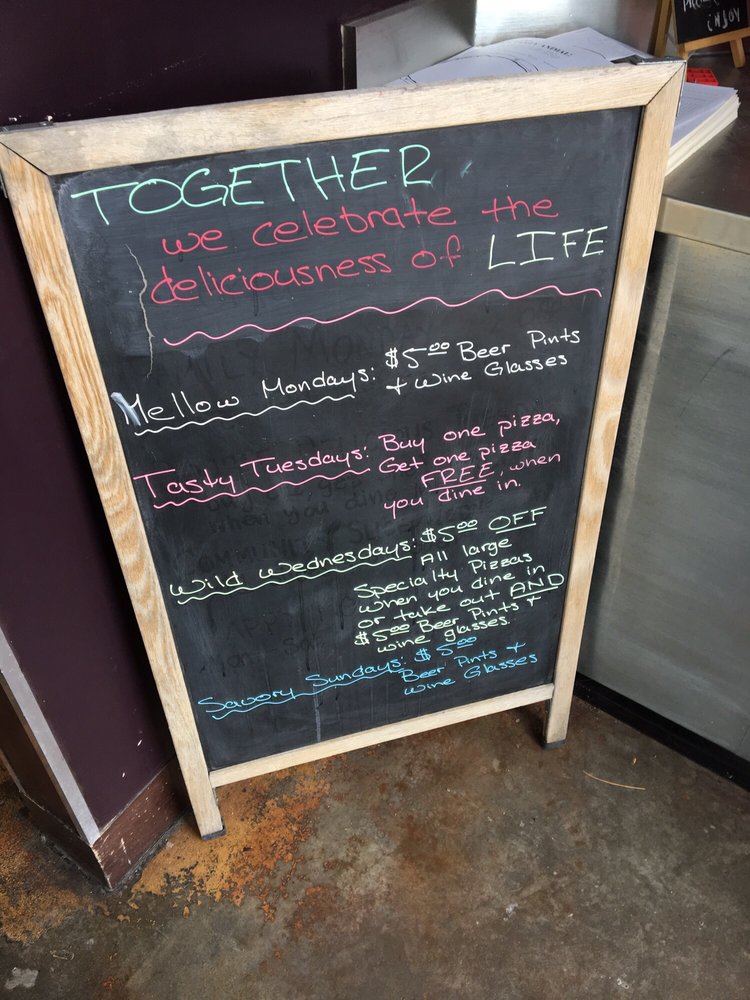 ENJOY
TOGETHER
we celebrate the
deliciousness of LIFE
Mellow Mondays: $5.00 Beer Pints
+ Wine Glasses
Tasty Tuesdays: Buy one pizza,
Get one pizza
FREE, when
you dine in.
Wild Wednesdays: $5.00 OFF
All large
Specialty Pizzas
when you dine in
or take out AND
$5.00 Beer Pints +
wine glasses.
Savory Sundays: $5.00
Beer Pints +
Wine Glasses